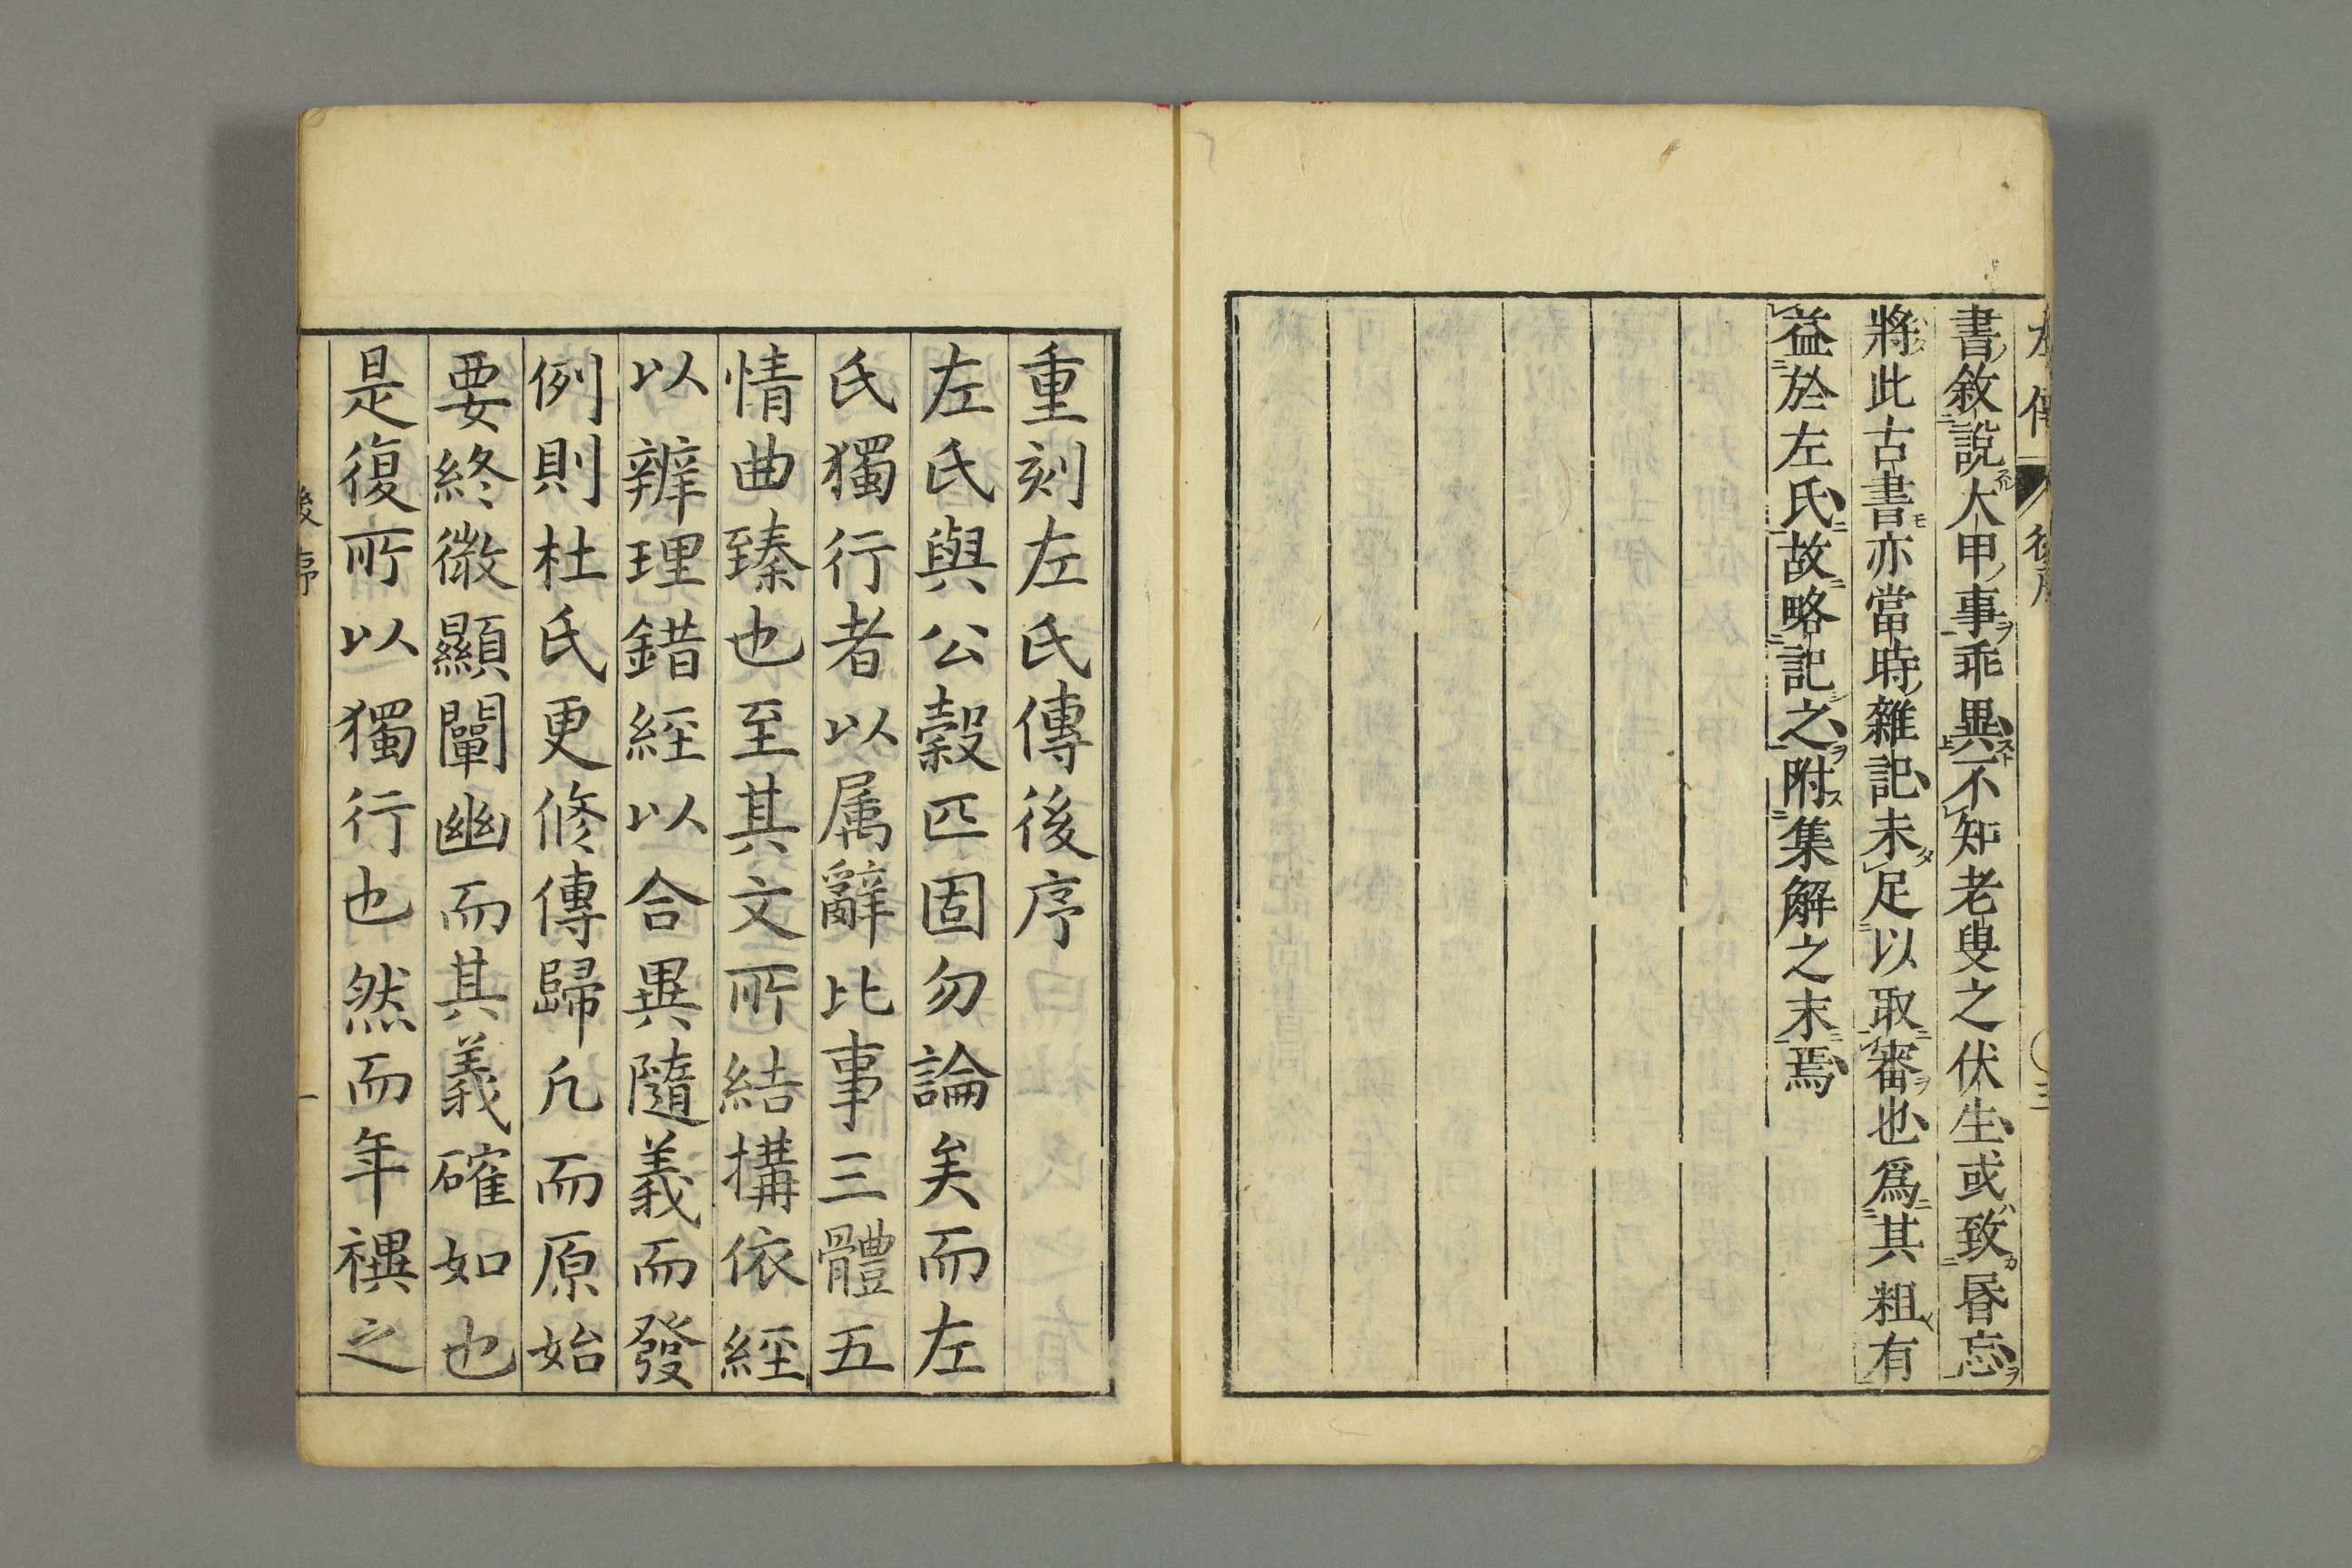 書敘說大甲事乖異不知老叟之伏生或致昬忘
將此古書亦當時雜記未足以取審也爲其粗有
益於左氏故略記之附集解之末焉
重刻左氏傳後序
左氏與公穀匹固勿論矣而左
氏獨行者以属辭比事三體五
情曲臻也至其文所結搆依經
以辨理錯經以合異隨義而發
例則杜氏更修傳歸凡而原始
要終微顯闡幽而其義確如也
是復所以獨行也然而年禩之
後序
一